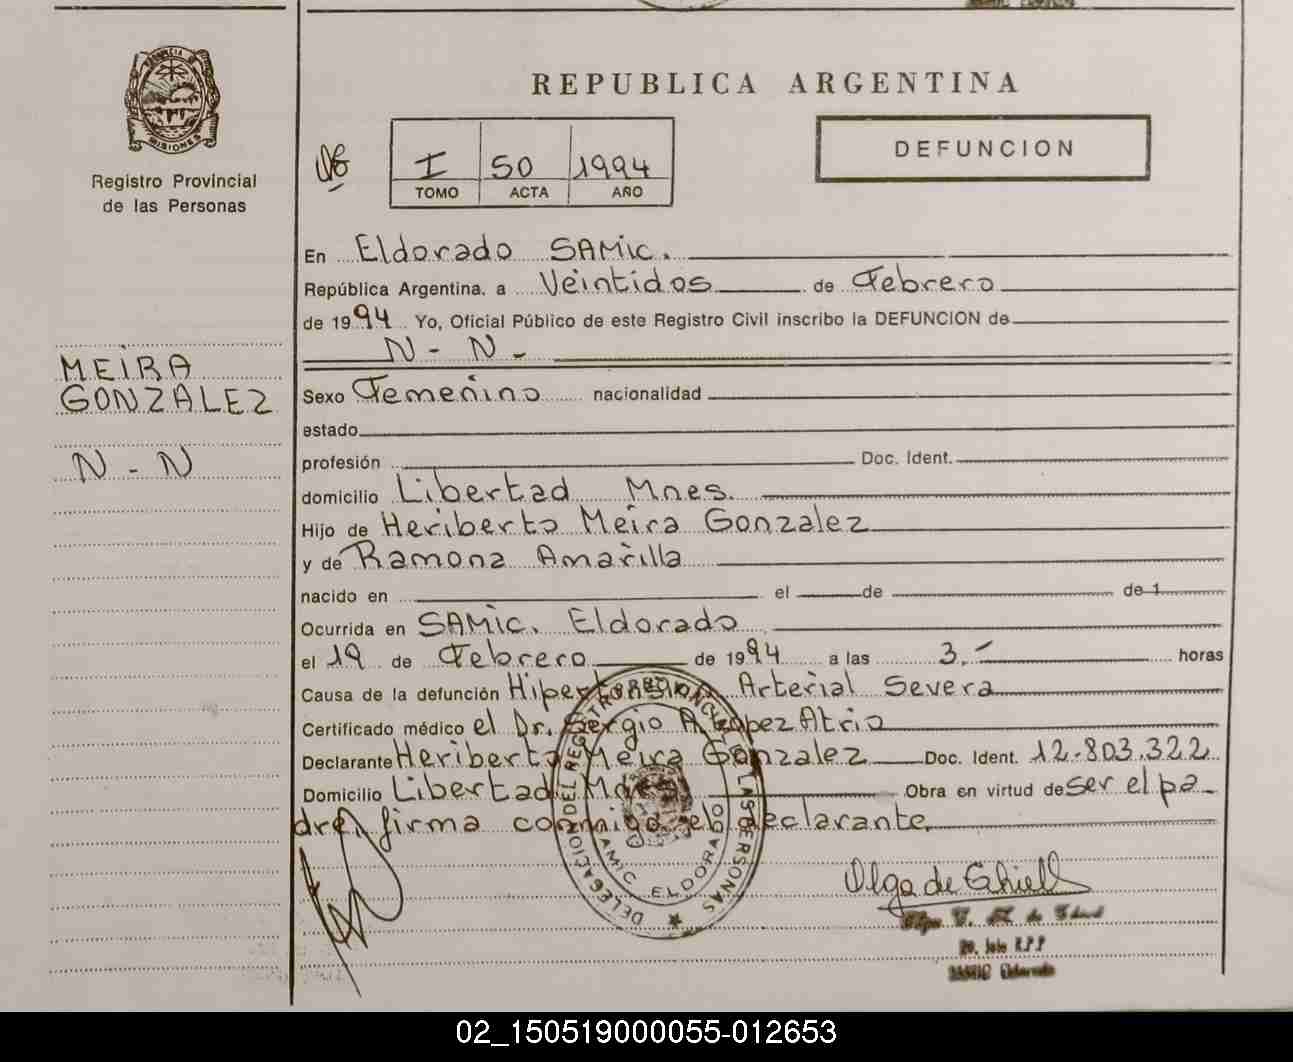 PROVINCIA DE
MISIONES
Registro Provincial
de las Personas
MEIRA
GONZALEZ
N - N
REPUBLICA ARGENTINA
I 50 1994
TOMO ACTA AÑO
DEFUNCION
En Eldorado SAMic.
República Argentina, a Veintidos de Febrero
de 1994 Yo, Oficial Público de este Registro Civil inscribo la DEFUNCION de
N - N -
Sexo Femenino nacionalidad
estado
profesión Doc. Ident.
domicilio Libertad Mnes.
Hijo de Heriberto Meira Gonzalez
y de Ramona Amarilla
nacido en el de de 1
Ocurrida en SAMic. Eldorado
el 19 de Febrero de 1994 a las 3.- horas
Causa de la defunción Hipertension Arterial Severa
Certificado médico el Dr. Sergio A Lopez Atrio
Declarante Heriberto Meira Gonzalez Doc. Ident. 12-803.322
Domicilio Libertad Mnes. Obra en virtud de ser el pa-
dre, firma conmigo el declarante.
DELEGACION DEL REGISTRO PROVINCIAL DE LAS PERSONAS
SAMIC ELDORADO
Olga de Ghiell
SAMIC Eldorado
02_150519000055-012653